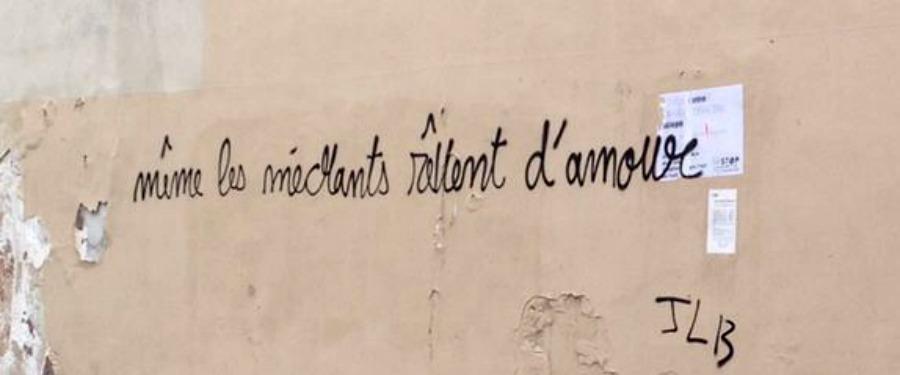 même les méchants rêvent d'amour
STOP
JLB